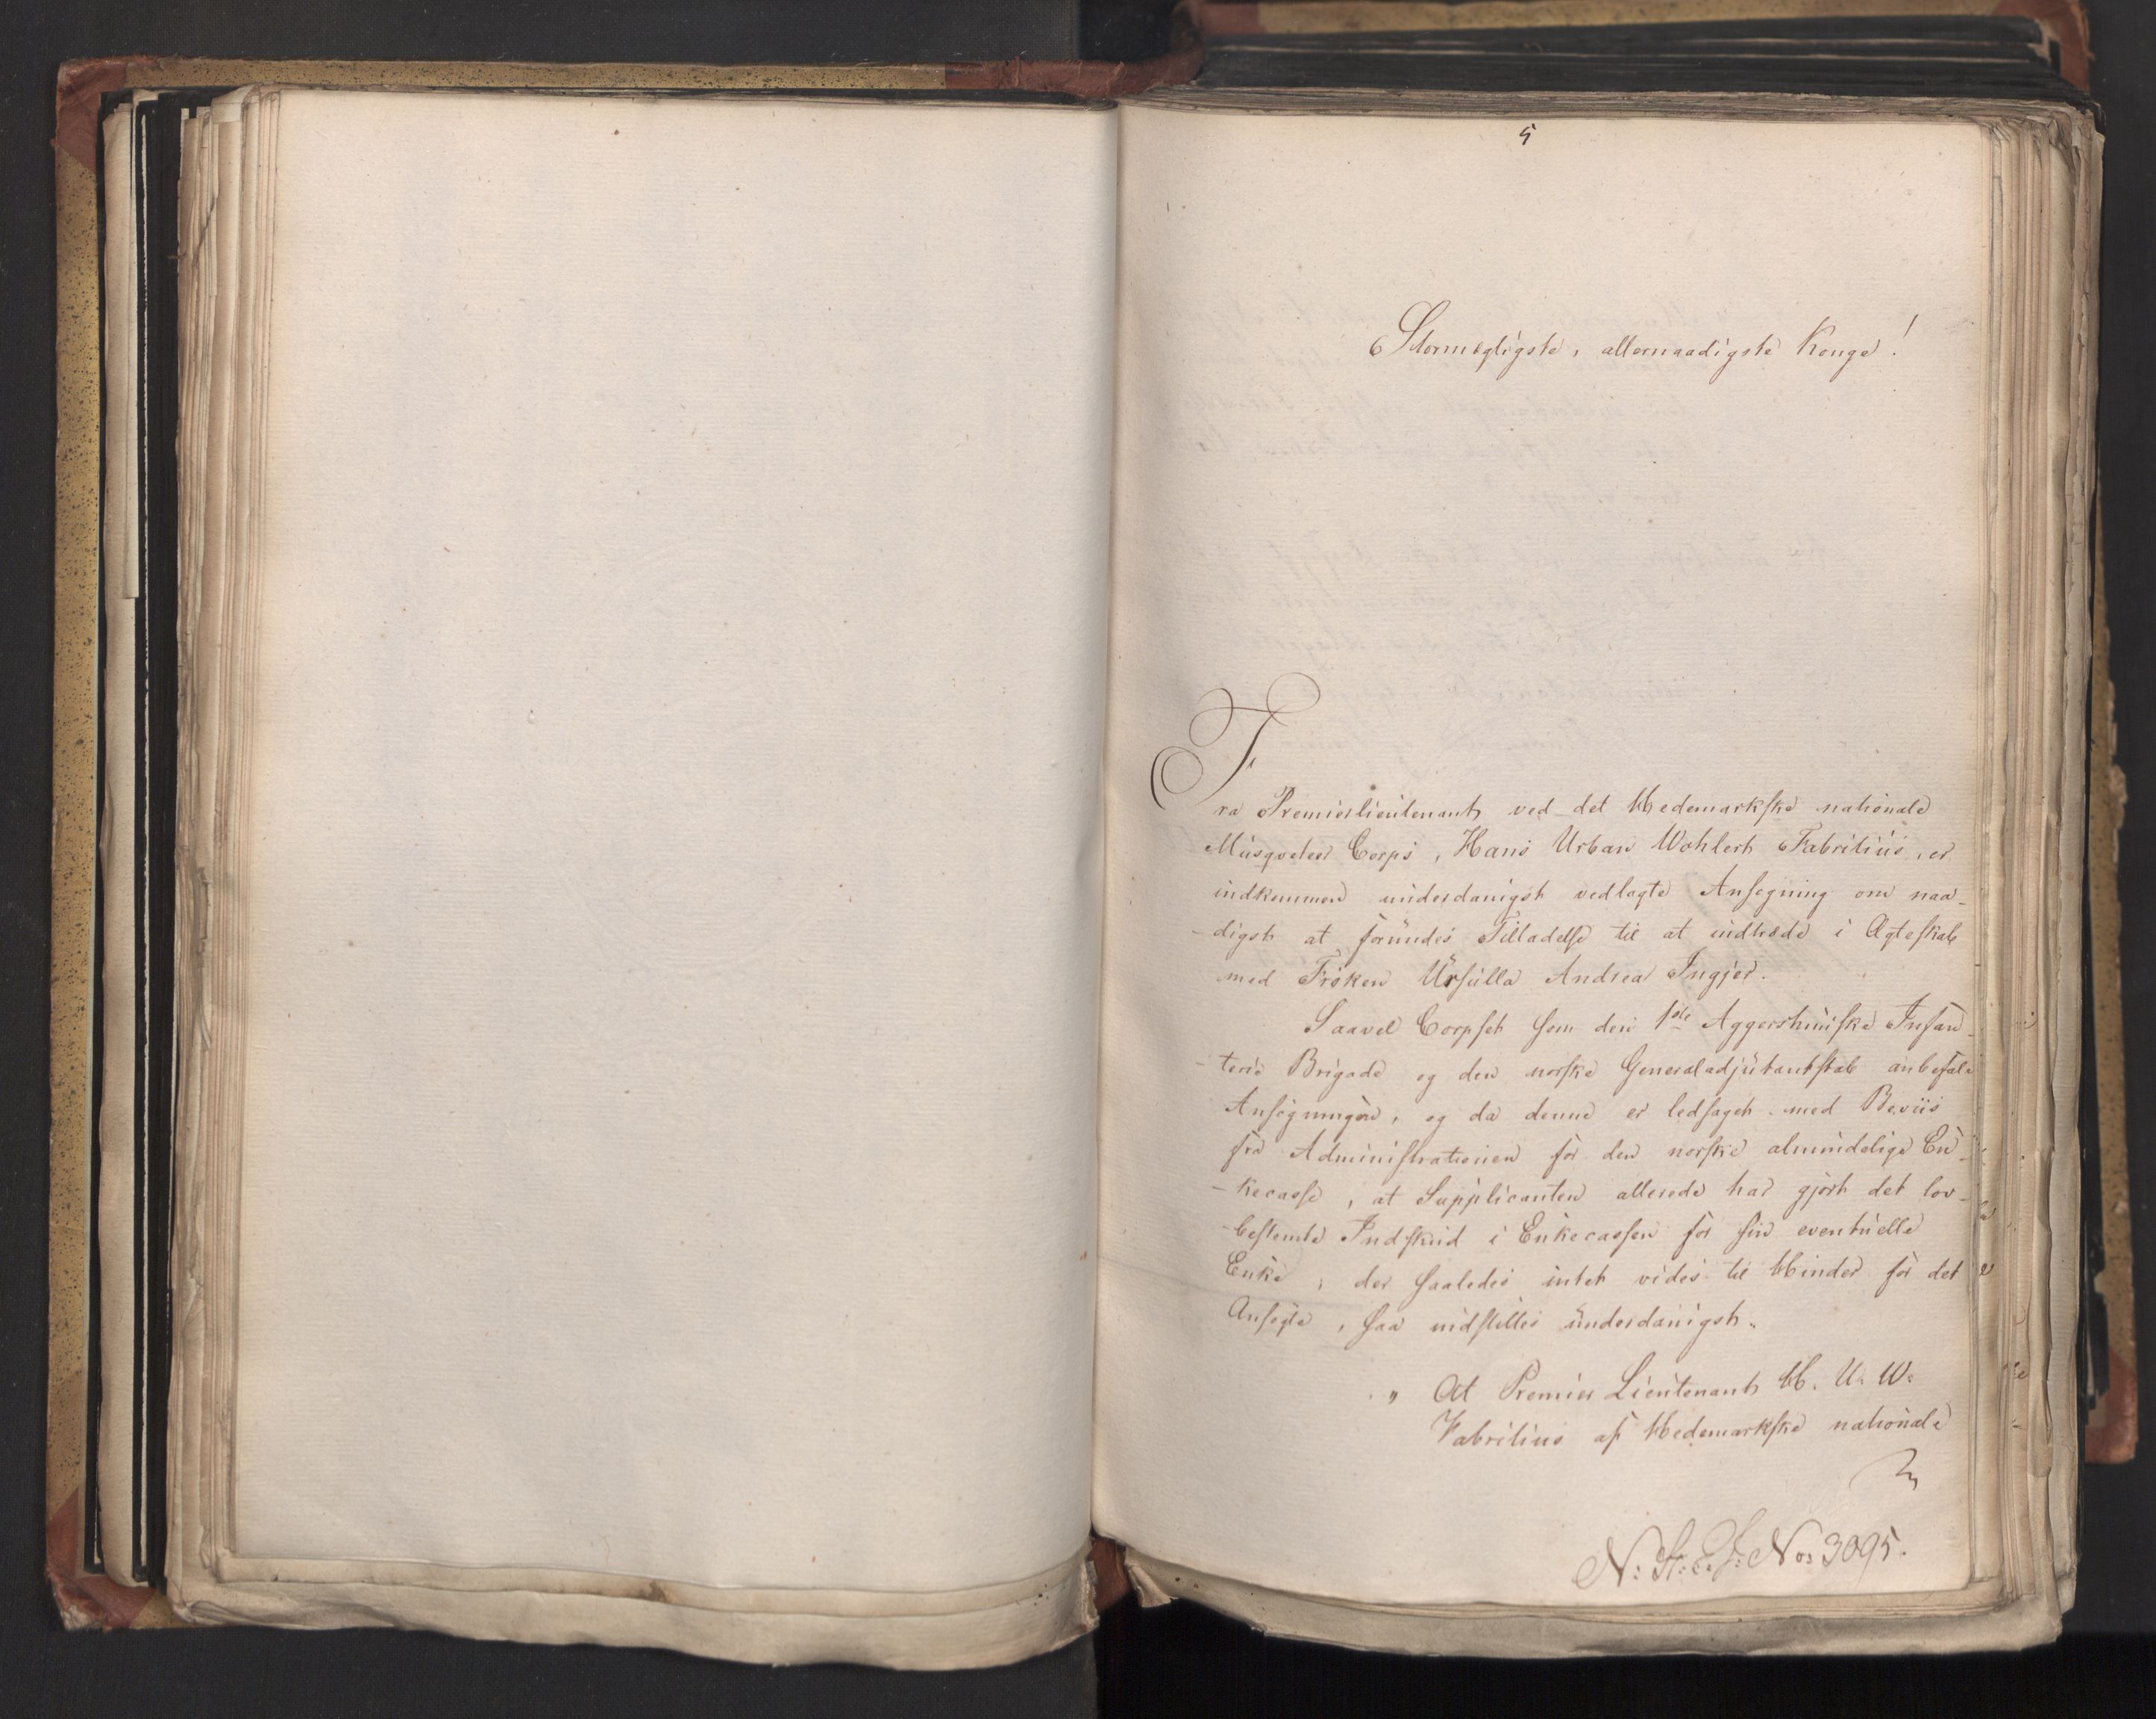 5
Stormægtigste, allernaadigste Konge!
Fra Premierlieutenant ved det Hedemarkske nationale
Musqveteer Corps, Hans Urban Wohlert Fabritius, er
indkommen underdanigst vedlagte Ansøgning om naa-
-digst at forundes Tilladelse til at indtræde i Ægteskab
med Frøken Ursulla Andrea Ingjer.
Saavel Corpset som den 1ste Aggershuuske Infan-
-terie Brigade og den norske Generaladjutantstab anbefale
Ansøgningen, og da denne er ledsaget med Beviis
fra Administrationen for den norske almindelige En-
-kecasse, at Supplicanten allerede har gjort det lov-
-bestemte Indskud i Enkecassen for sin eventuelle
Enke, der saaledes intet vides til Hinder for det
Ansøgte, saa indstilles underdanigst:
" At Premier Lieutenant H. U. W.
Fabritius af Hedemarkske nationale
N: St: E: J: No: 3095.